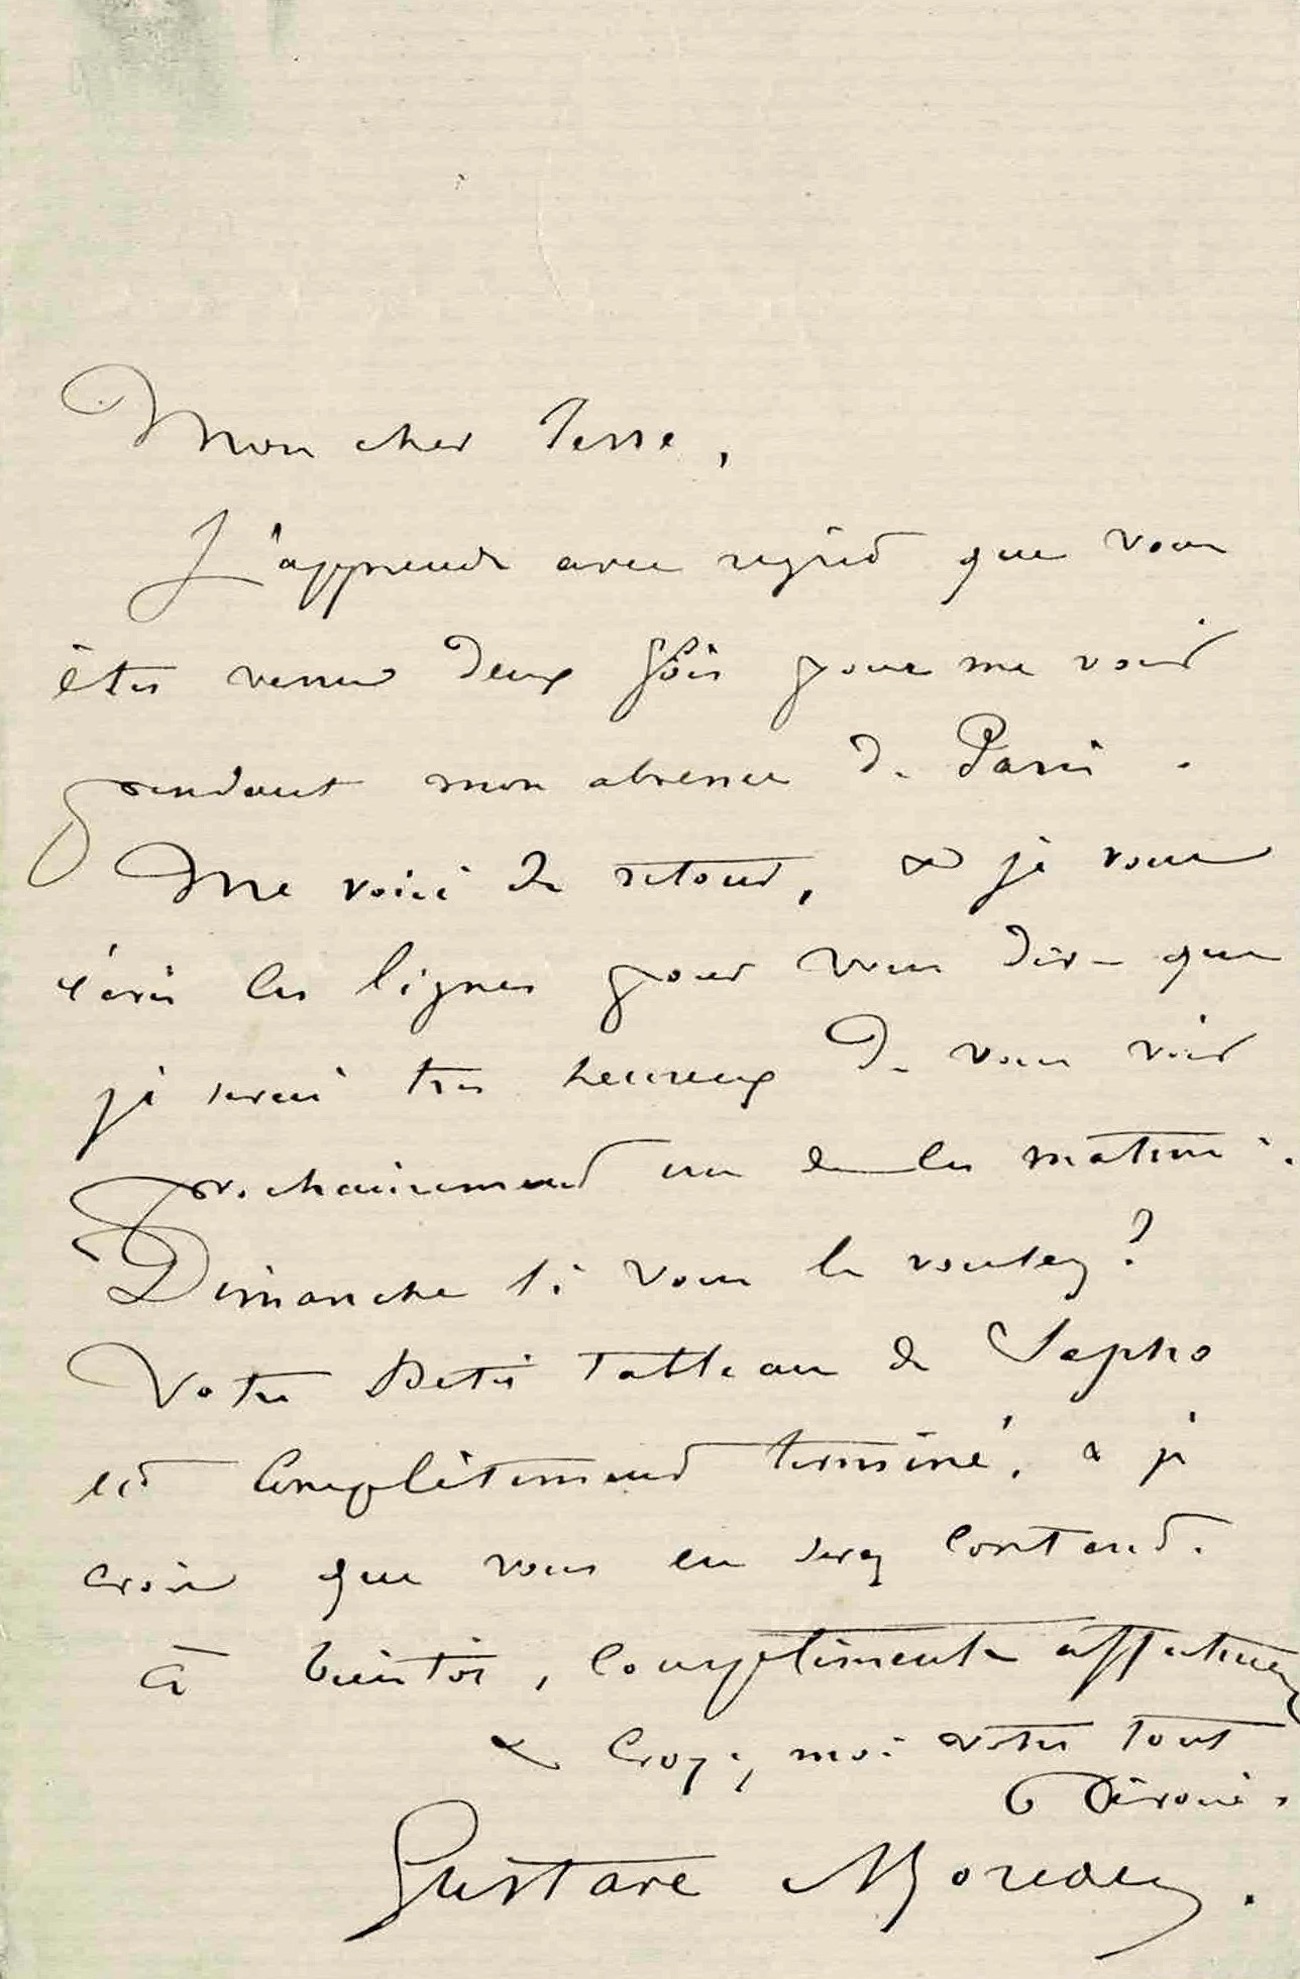 Mon cher Tesse,
J'apprends avec regret que vous
êtes venu deux fois pour me voir
pendant mon absence de Paris.
Me voici de retour, & je vous
écris ces lignes pour vous dire que
je serai très heureux de vous voir
prochainement un de ces matins.
Dimanche si vous le voulez?
Votre petit tableau de Sapho
est complètement terminé, & je
crois que vous en serez content.
à bientôt, compliments affectueux
& croyez moi votre tout
dévoué.
Gustave Moreau.